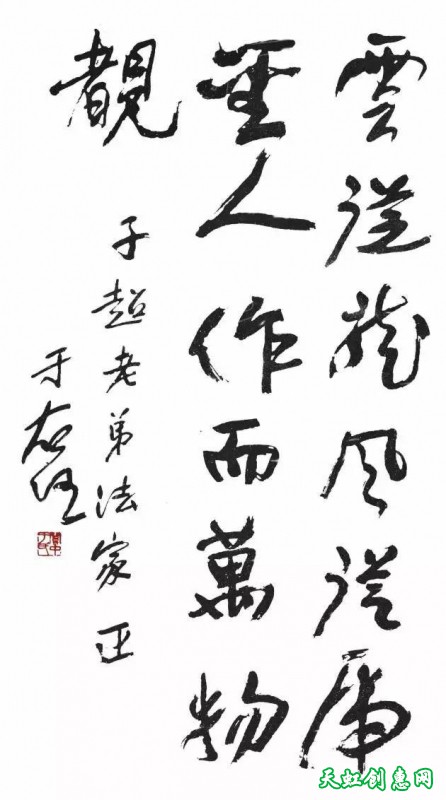 雲從龍風從虎
聖人作而萬物
覩
子超老弟法家正
于右任
天虹创惠网